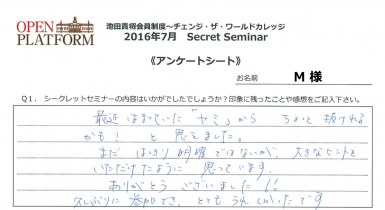 OPEN
PLATFORM
池田貴将会員制度～チェンジ・ザ・ワールドカレッジ
2016年7月 Secret Seminar
《アンケートシート》
お名前 M 様
Q1. シークレットセミナーの内容はいかがでしたでしょうか？印象に残ったことや感想をご記入下さい。
最近はまっていた「ヤミ」から ちょっと抜けれる
かも！ と思えました。
まだ はっきり明確ではないが、大きなヒントを
いただけたように 思っています。
ありがとう ございました！！
久しぶりに 参加でき、とても うれしかったです